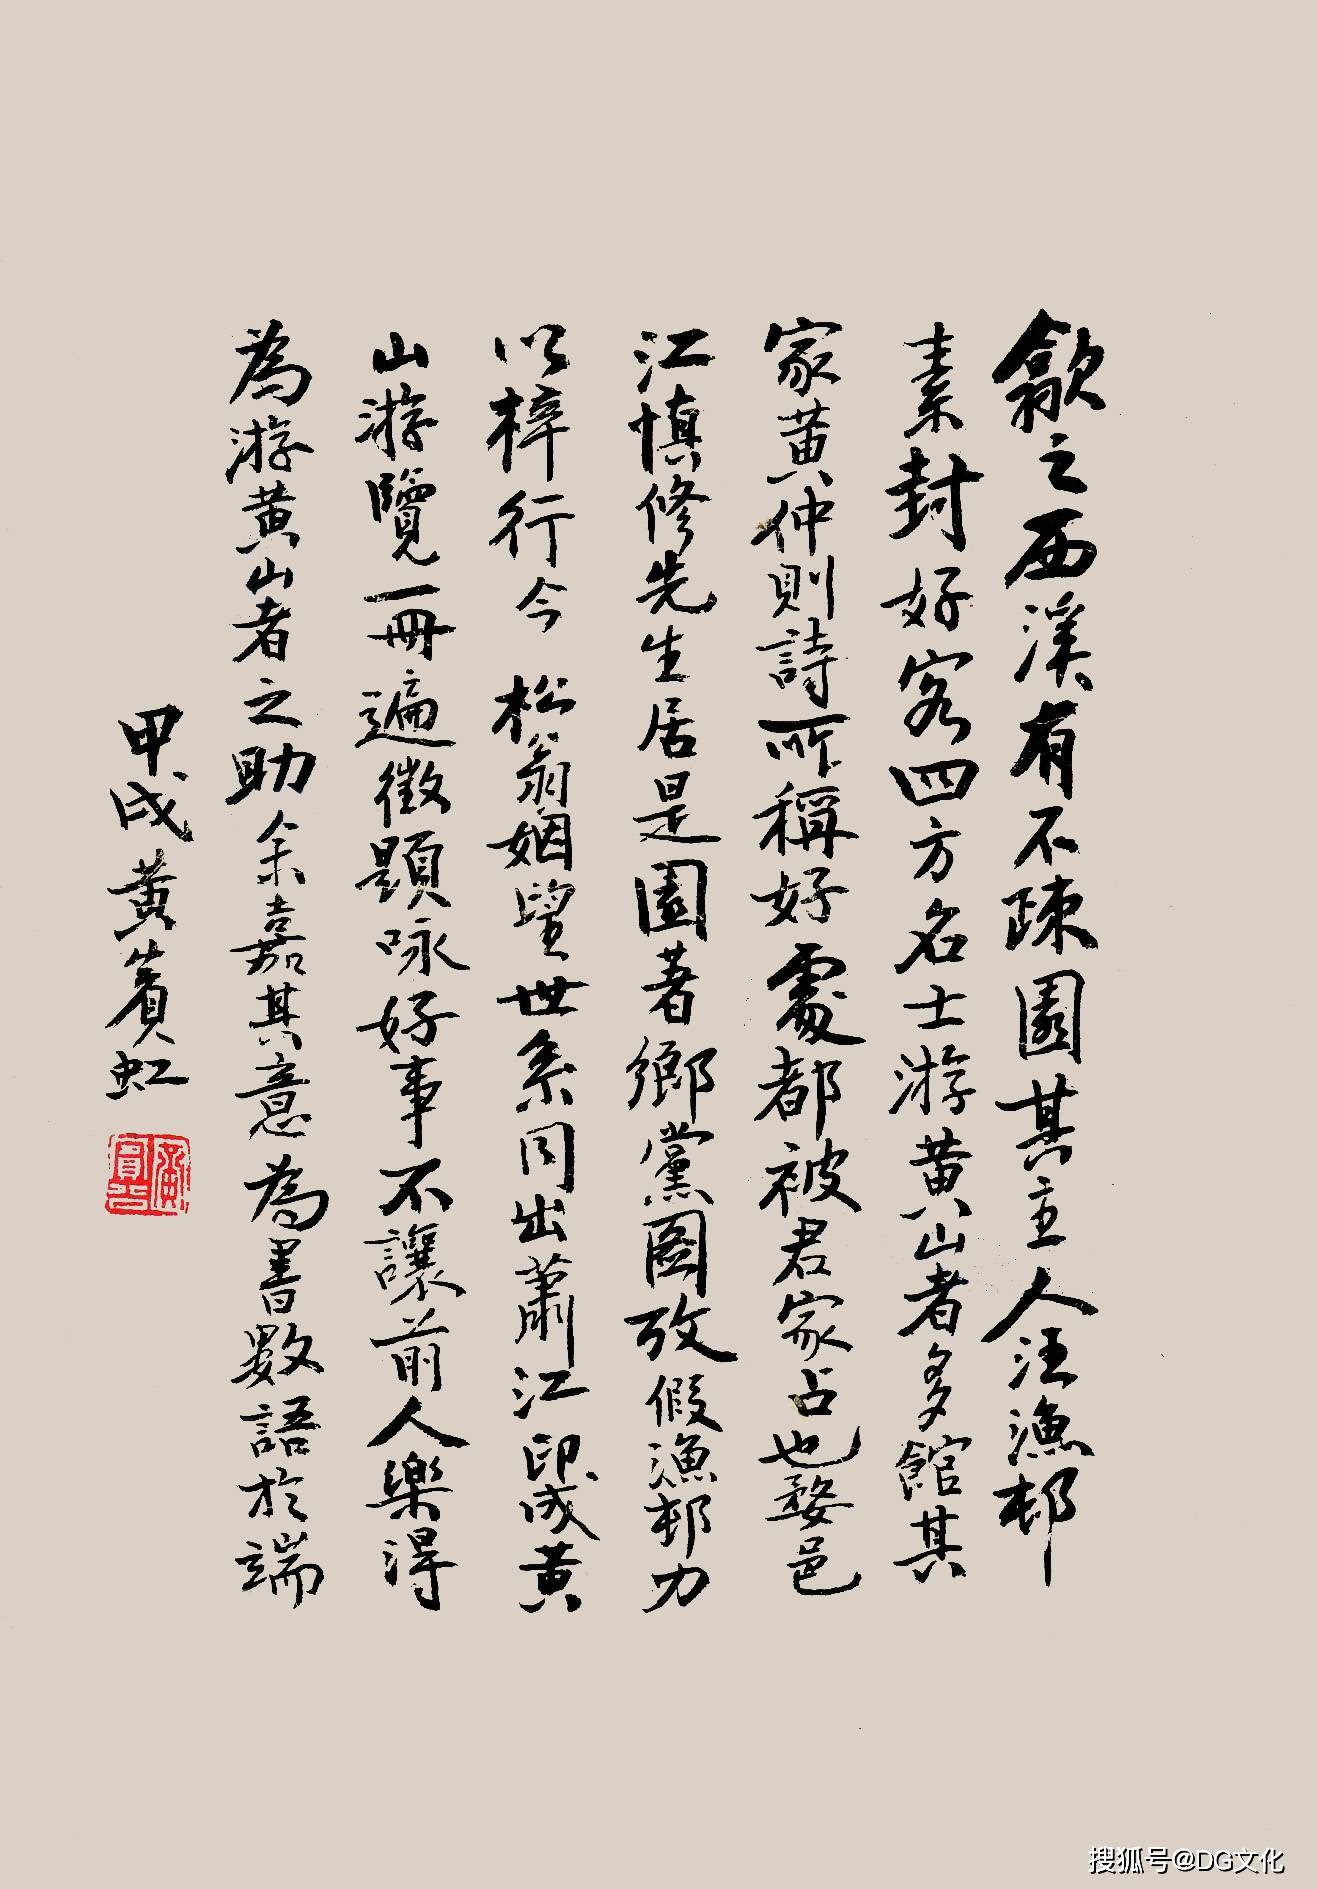 歙之西溪有不疎園其主人汪漁邨
素封好客四方名士游黄山者多館其
家黄仲則詩所稱好處都被君家占也婺邑
江慎修先生居是園著鄉黨圖攷假漁邨力
以梓行今松翁姻望世系同出蕭江印成黄
山游覽一冊遍徵題咏好事不讓前人樂得
為游黄山者之助余嘉其意為書數語於端
甲戌黄賓虹
搜狐号@DG文化